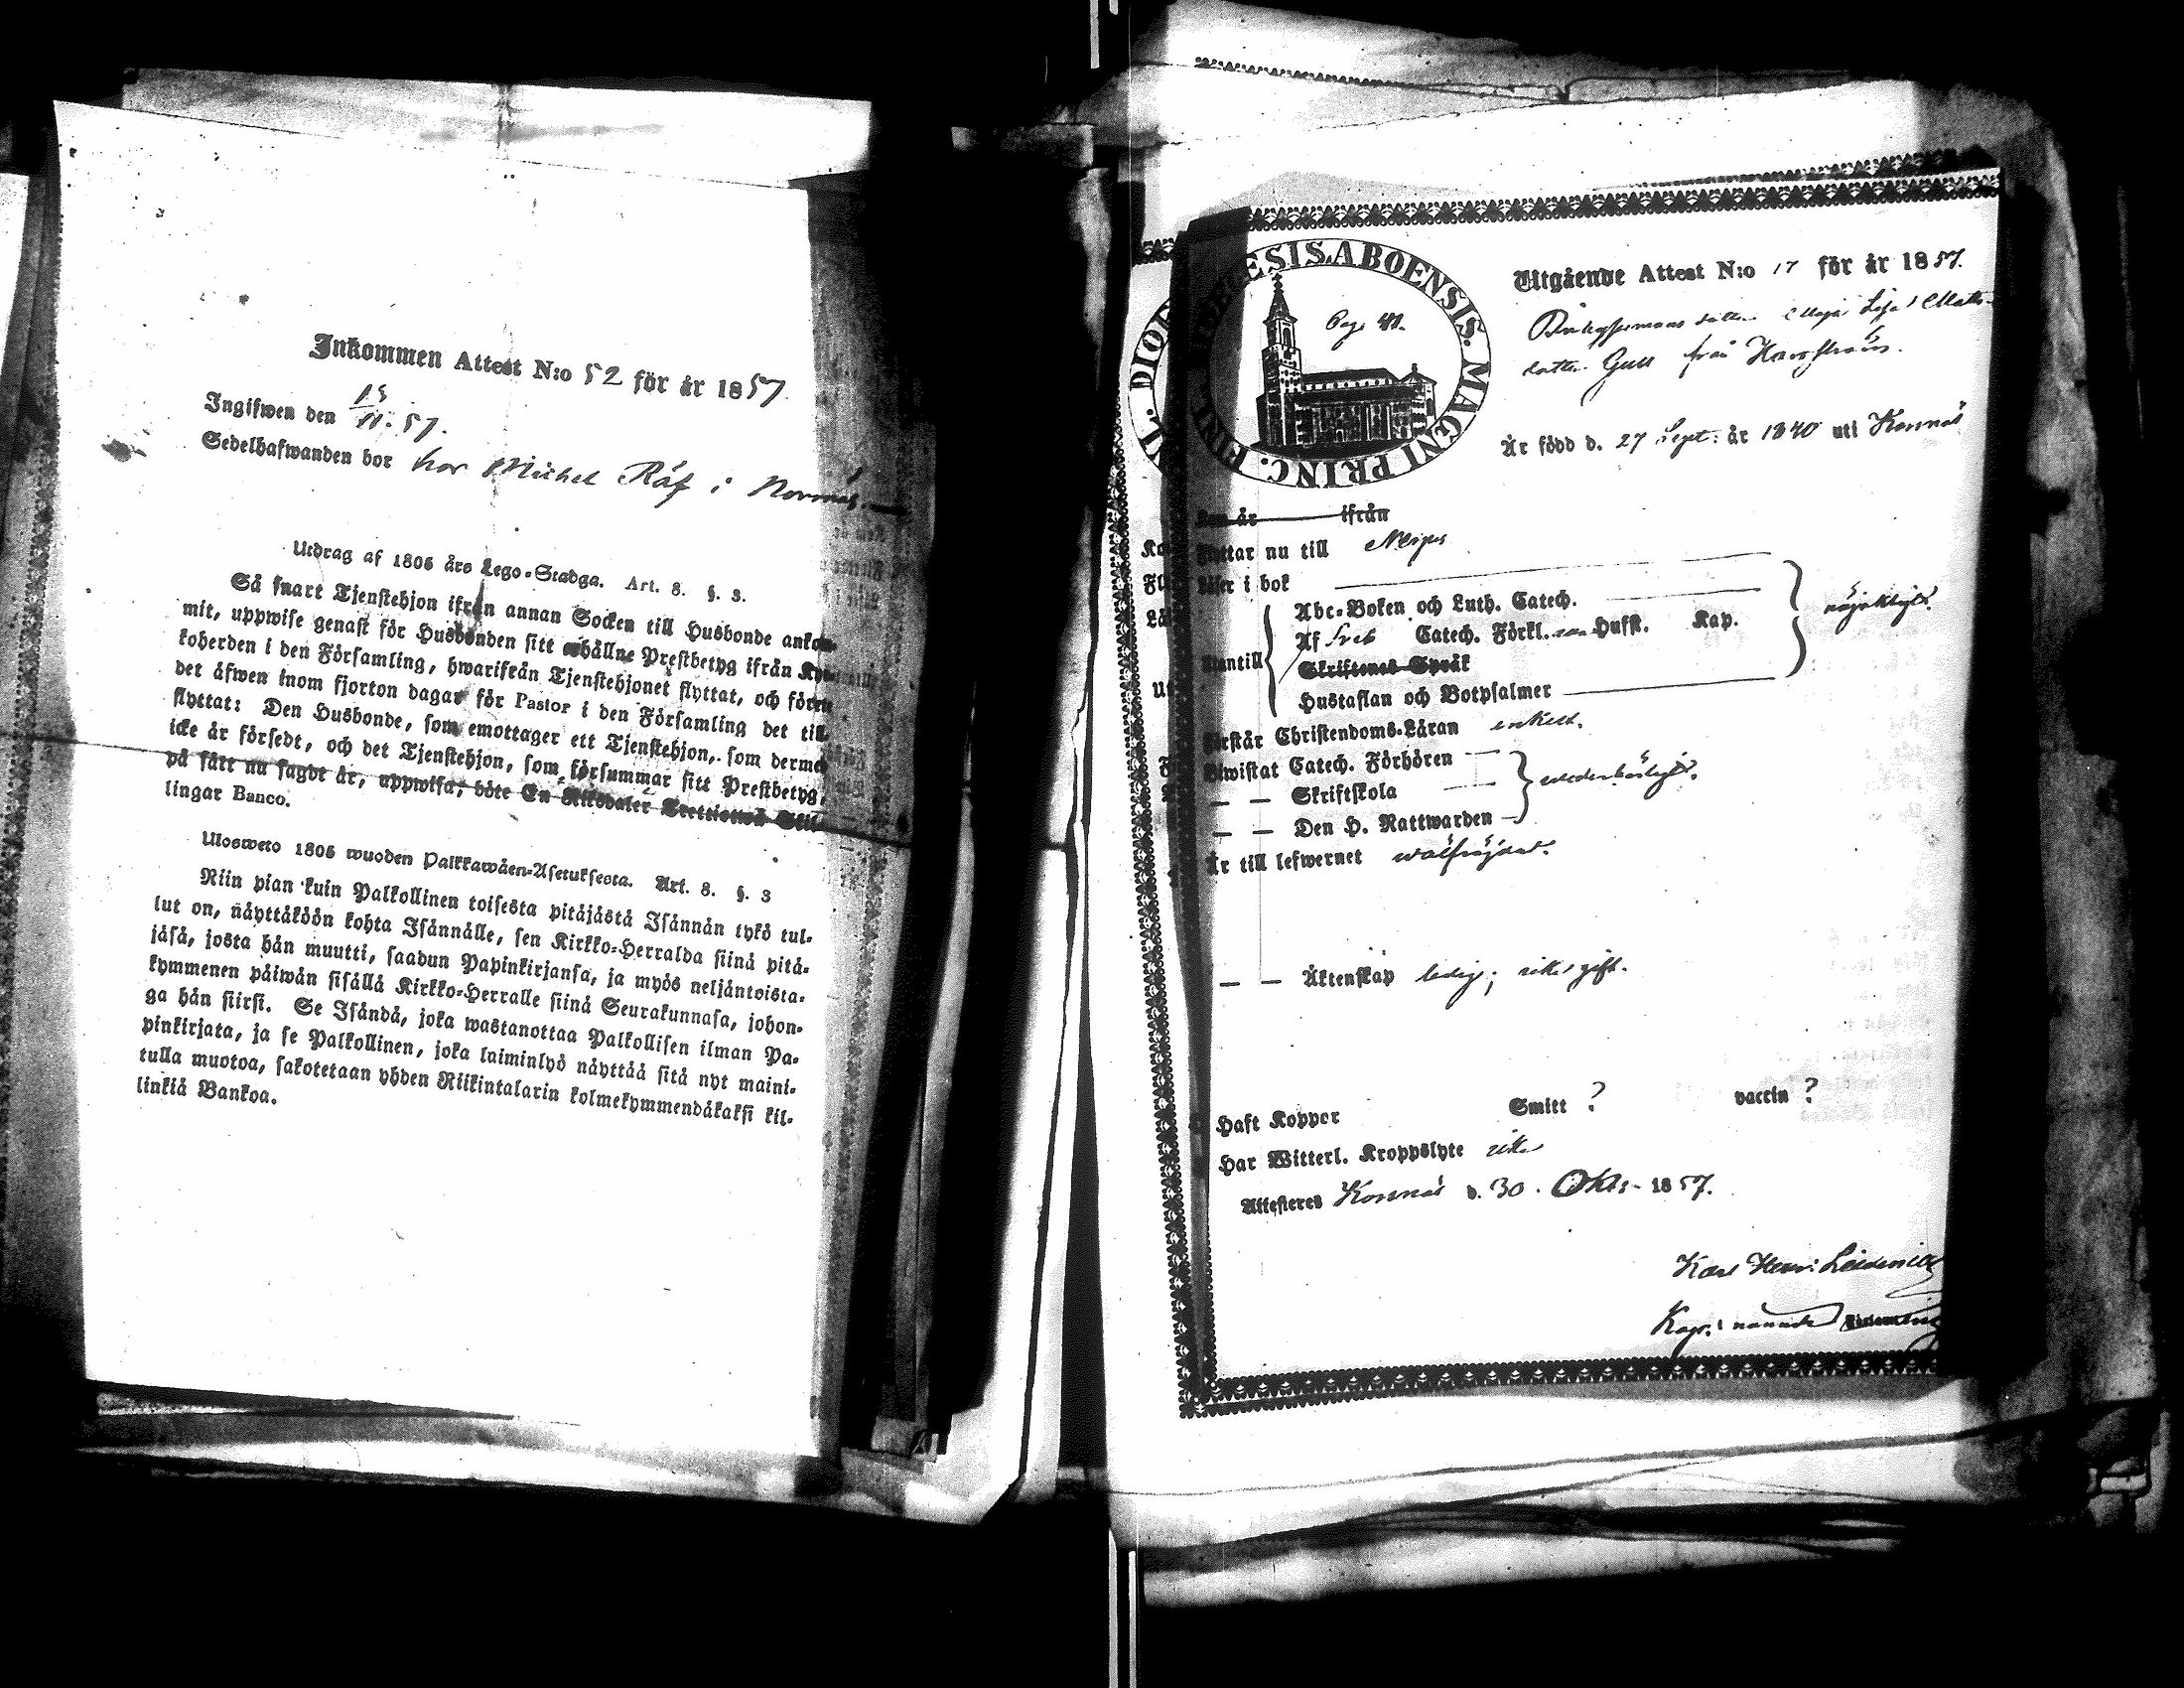 Inkommen Attest N:o 52 för år 1857.
Ingifwen den 13/11. 57.
Sedelhafwanden bor hos Michel Räf i Norrnäs.
Utdrag af 1805 års Lego-Stadga. Art. 8. §. 3.
Så snart Tjenstehjon ifrån annan Socken till Husbonde ankom-
mit, uppwise genast för Husbonden sitt erhållne Prestbetyg ifrån Kyr-
koherden i den Församling, hwarifrån Tjenstehjonet flyttat, och förete
det äfwen inom fjorton dagar för Pastor i den Församling det till-
flyttat: Den Husbonde, som emottager ett Tjenstehjon, som dermed
icke är försedt, och det Tjenstehjon, som försummar sitt Prestbetyg,
på sätt nu sagdt är, uppwisa, böte En Riksdaler Trettiotwå Skil-
lingar Banco.
Ulosweto 1805 wuoden Palkkawäen-Asetuksesta. Art. 8. §. 3
Niin pian kuin Palkollinen toisesta pitäjästä Isännän tykö tul-
lut on, näyttäköön kohta Isännälle, sen Kirkko-Herralda siinä pitä-
jäsä, josta hän muutti, saadun Papinkirjansa, ja myös neljäntoista-
kymmenen päiwän sisällä Kirkko-Herralle siinä Seurakunnasa, johon-
ga hän siirsi. Se Isändä, joka wastanottaa Palkollisen ilman Pa-
pinkirjata, ja se Palkollinen, joka laiminlyö näyttää sitä nyt maini-
tulla muotoa, sakotetaan yhden Riikintalarin kolmekymmendäkaksi kil-
linkiä Bankoa.
DIOECESIS. ABOENSIS. MAGNI PRINC. FINL.
Pag. 41.
Utgående Attest N:o 17 för år 1857.
dotter Maja Lisa Matts-
dotter Gull från
Är född d. 27 Sept: år 1840 uti Korsnäs
Kom år ifrån
Flyttar nu till
Läser i bok
Abc-Boken och Luth. Catech.
Af Sveb Catech. Förkl. Husst. Kap.
nöjaktigt.
Utantill
Skriftenes Språk
Hustaflan och Botpsalmer
Förstår Christendoms-Läran enkelt.
Biwistat Catech. Förhören
— — Skriftskola
wederbörligt.
— — Den H. Nattwarden
Är till lefwernet wälfrejdad.
— — Äktenskap ledig; icke gift.
Haft Koppor Smitt ? vaccin ?
Har Witterl. Kroppslyte icke
Attesteras Korsnäs d. 30. Okt:- 1857.
Karl Henr:
Kapl. i nämnde Församling